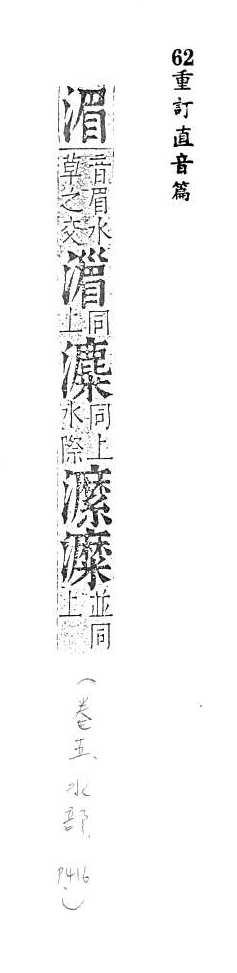 62重訂直音篇
湄音眉水草之交同上同上水際並同上
（卷五、水部、P416）